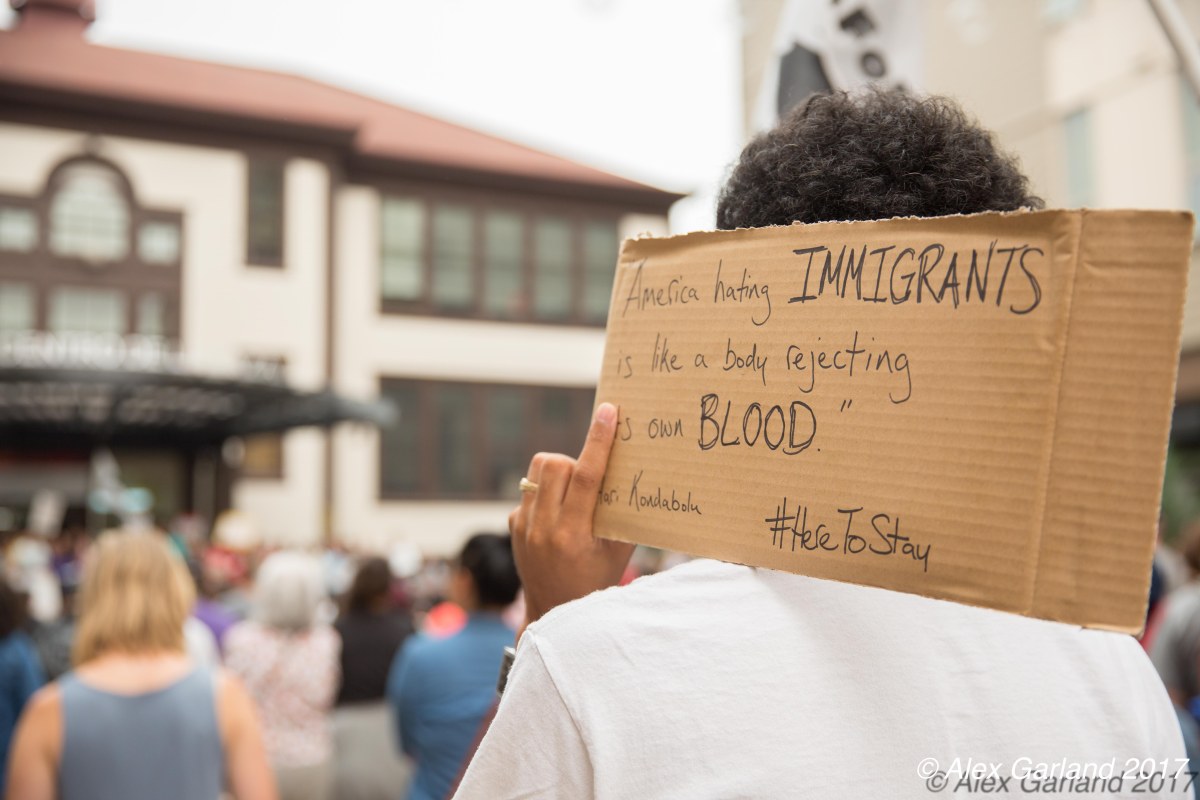 America hating IMMIGRANTS
is like a body rejecting
own BLOOD."
Kondabolu
#HereToStay
© Alex Garland 2017
© Alex Garland 2017